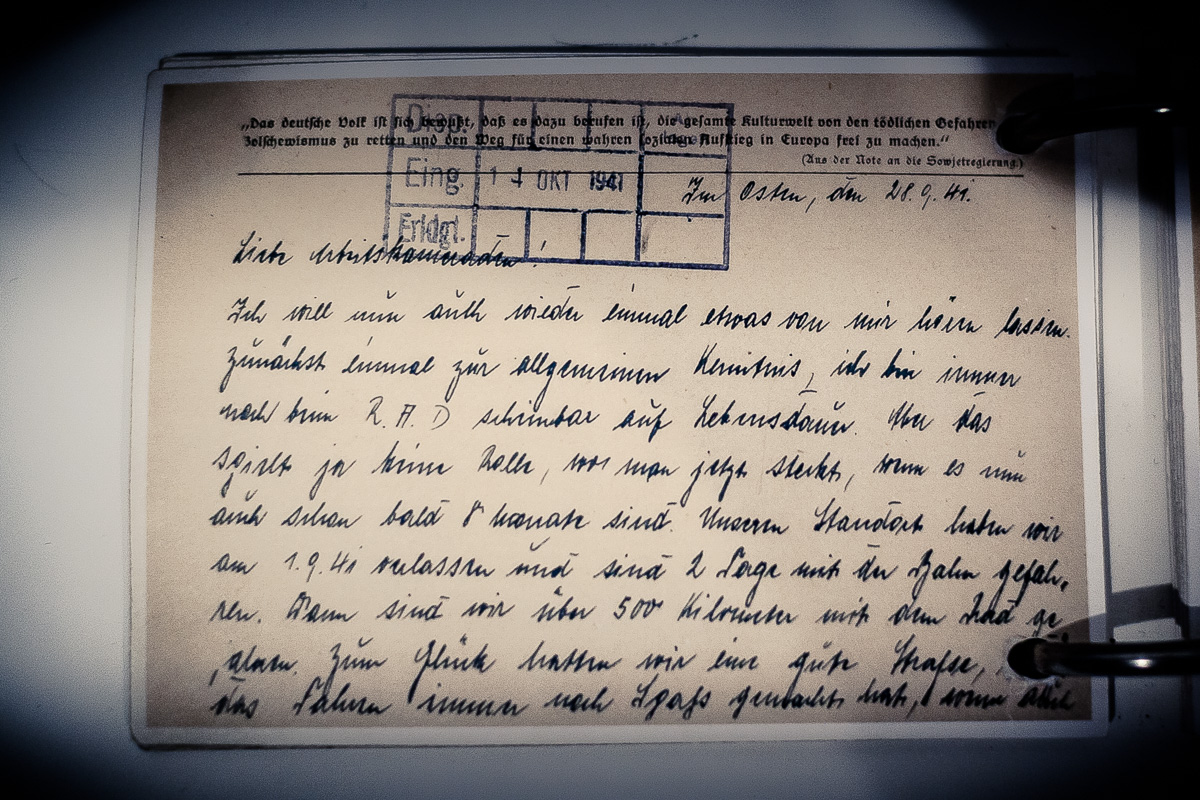 „Das deutsche Volk ist sich bewußt, daß es dazu berufen ist, die gesamte Kulturwelt von den tödlichen Gefahren
Bolschewismus zu retten und den Weg für einen wahren sozialen Aufstieg in Europa frei zu machen.“
(Aus der Note an die Sowjetregierung.)
Disp.
Eing. 14 OKT 1941
Erldgt.
Im Osten, den 28.9.41.
Liebe Arbeitskameraden!
Ich will nun auch wieder einmal etwas von mir hören lassen.
Zunächst einmal zur allgemeinen Kenntnis, ich bin immer
noch beim R.A.D scheinbar auf Lebensdauer. Aber das
spielt ja keine Rolle, wo man jetzt steckt, wenn es nun
auch schon bald 8 Monate sind. Unseren Standort haben wir
am 1.9.41 verlassen und sind 2 Tage mit der Bahn gefah-
ren. Dann sind wir über 500 Kilometer mit dem Rad ge
Zum Glück hatten wir eine gute Strasse,
das Fahren immer noch Spaß gemacht hat, wenn auch